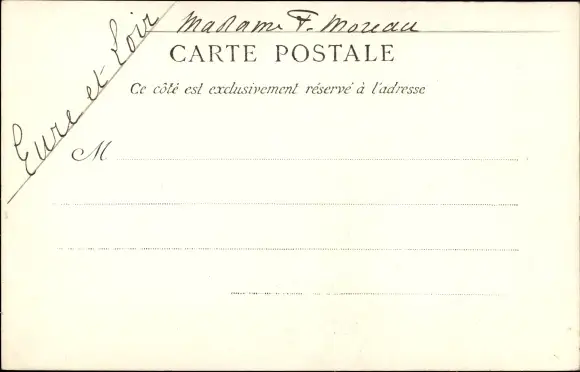 Madame F. Moreau
Eure et Loir
CARTE POSTALE
Ce côté est exclusivement réservé à l'adresse
M